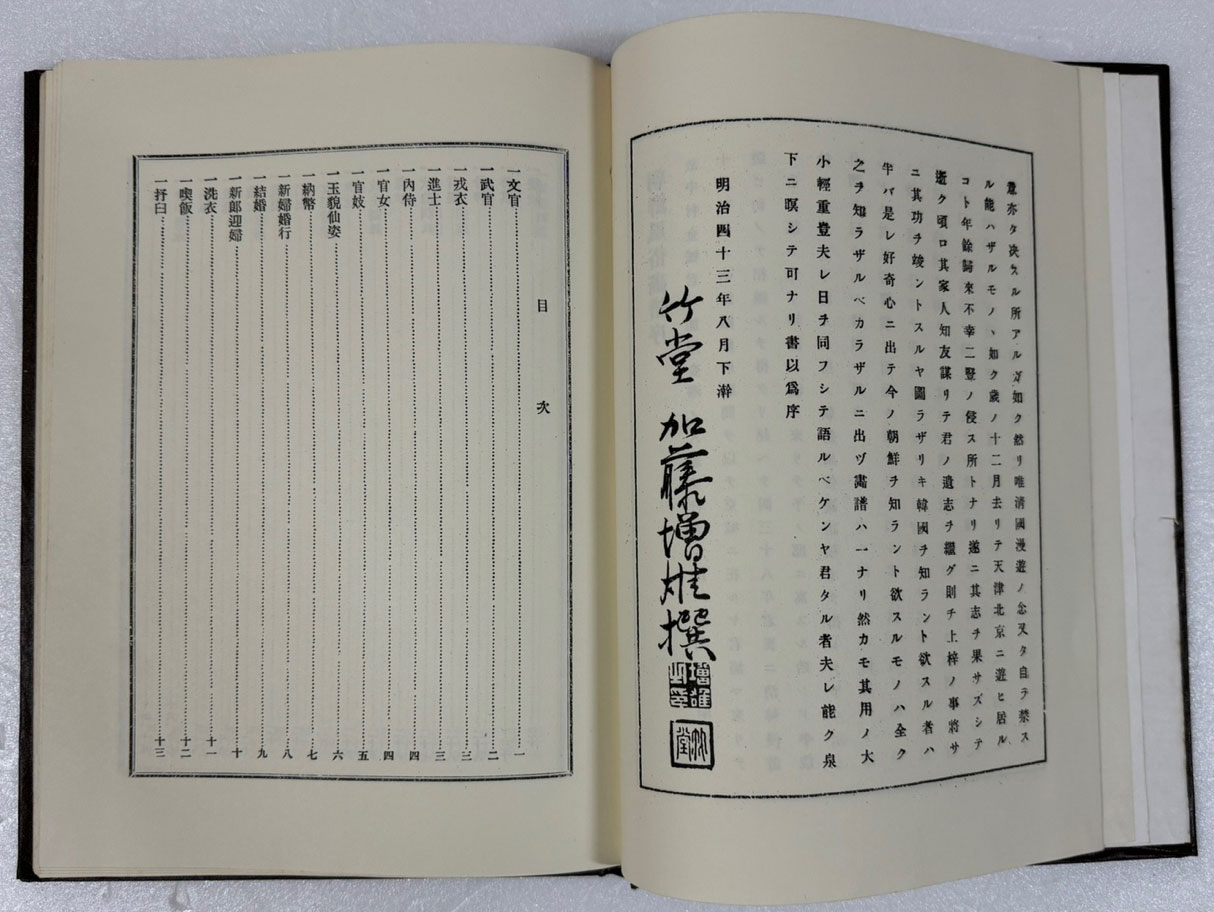 意亦タ决スル所アルガ如ク然リ唯清國漫遊ノ念又タ自ヲ禁ス
ル能ハザルモノヽ如ク歳ノ十二月去リテ天津北京ニ遊ヒ居ル
コト年餘歸來不幸二豎ノ侵ス所トナリ遂ニ其志ヲ果サズシテ
逝ク頃ロ其家人知友謀リテ君ノ遺志ヲ繼グ則チ上梓ノ事將サ
ニ其功ヲ竣ントスルヤ圖ラザリキ韓國ヲ知ラント欲スル者ハ
半バ是レ好奇心ニ出テ今ノ朝鮮ヲ知ラント欲スルモノハ全ク
之ヲ知ラザルベカラザルニ出ヅ畵譜ハ一ナリ然カモ其用ノ大
小輕重豈夫レ日ヲ同フシテ語ルベケンヤ君タル者夫レ能ク泉
下ニ暝シテ可ナリ書以爲序
明治四十三年八月下澣
竹堂 加藤增雄撰
增雄之印
竹堂
目次
一文官 一
一武官 二
一戎衣 三
一進士 三
一內侍 四
一官女 四
一官妓 五
一玉貌仙姿 六
一納幣 七
一新婦婚行 八
一結婚 九
一新郎迎婦 十
一洗衣 十一
一喫飯 十二
一抒臼 十三